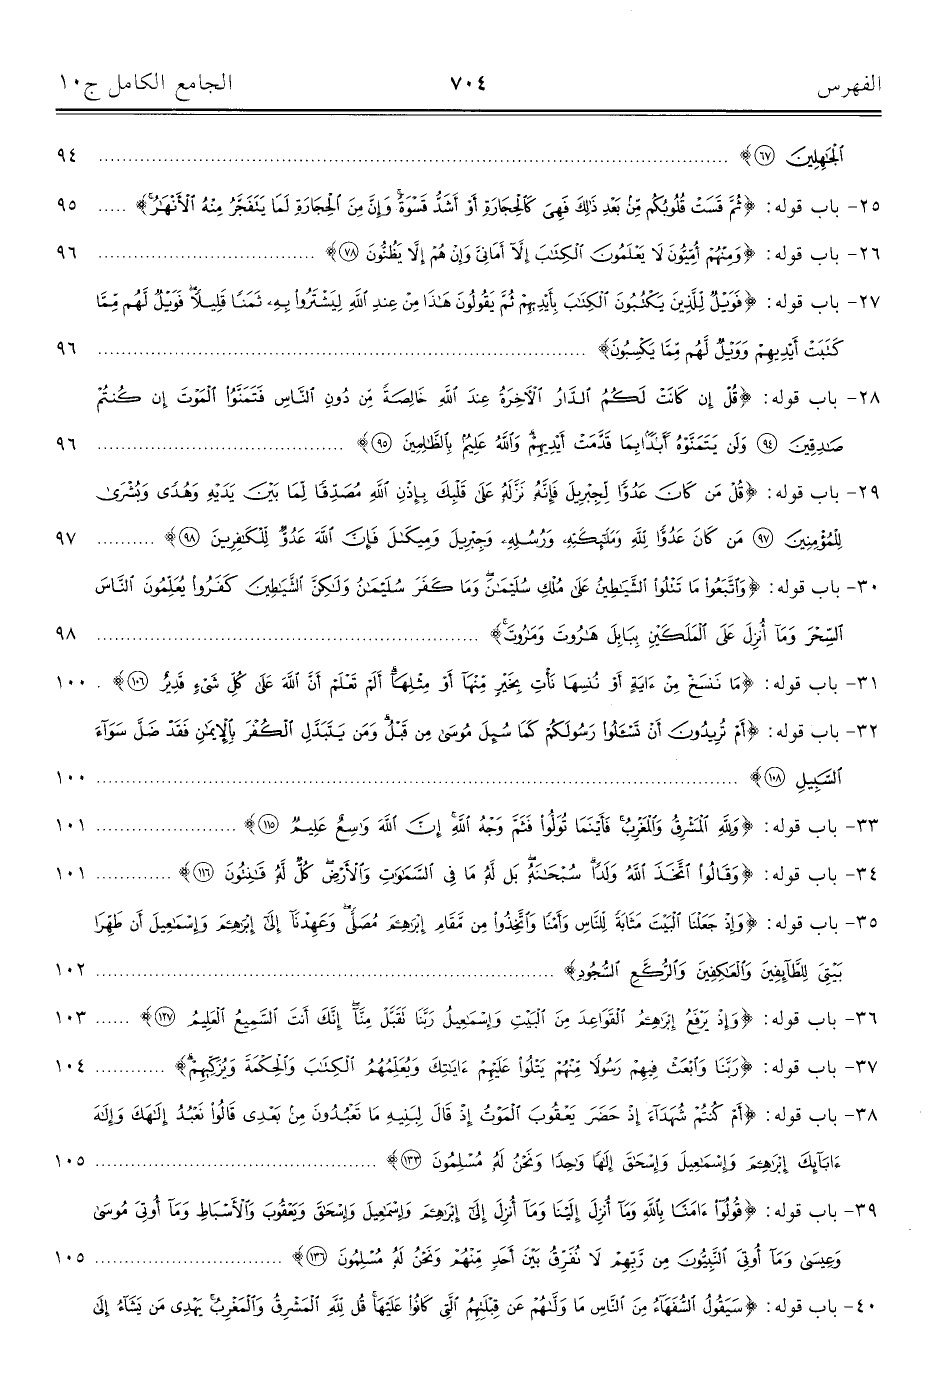 الفهرس ٧٠٤ الجامع الكامل ج١٠
ٱلْجَٰهِلِينَ ﴿٦٧﴾﴾ .......... ٩٤
٢٥- باب قوله: ﴿ثُمَّ قَسَتْ قُلُوبُكُم مِّنۢ بَعْدِ ذَٰلِكَ فَهِىَ كَٱلْحِجَارَةِ أَوْ أَشَدُّ قَسْوَةً ۚ وَإِنَّ مِنَ ٱلْحِجَارَةِ لَمَا يَتَفَجَّرُ مِنْهُ ٱلْأَنْهَٰرُ ۚ﴾ ..... ٩٥
٢٦- باب قوله: ﴿وَمِنْهُمْ أُمِّيُّونَ لَا يَعْلَمُونَ ٱلْكِتَٰبَ إِلَّآ أَمَانِىَّ وَإِنْ هُمْ إِلَّا يَظُنُّونَ ﴿٧٨﴾﴾ .......... ٩٦
٢٧- باب قوله: ﴿فَوَيْلٌ لِّلَّذِينَ يَكْتُبُونَ ٱلْكِتَٰبَ بِأَيْدِيهِمْ ثُمَّ يَقُولُونَ هَٰذَا مِنْ عِندِ ٱللَّهِ لِيَشْتَرُوا۟ بِهِۦ ثَمَنًا قَلِيلًا ۖ فَوَيْلٌ لَّهُم مِّمَّا
كَتَبَتْ أَيْدِيهِمْ وَوَيْلٌ لَّهُم مِّمَّا يَكْسِبُونَ﴾ .......... ٩٦
٢٨- باب قوله: ﴿قُلْ إِن كَانَتْ لَكُمُ ٱلدَّارُ ٱلْآخِرَةُ عِندَ ٱللَّهِ خَالِصَةً مِّن دُونِ ٱلنَّاسِ فَتَمَنَّوُا۟ ٱلْمَوْتَ إِن كُنتُمْ
صَٰدِقِينَ ﴿٩٤﴾ وَلَن يَتَمَنَّوْهُ أَبَدًۢا بِمَا قَدَّمَتْ أَيْدِيهِمْ ۗ وَٱللَّهُ عَلِيمٌۢ بِٱلظَّٰلِمِينَ ﴿٩٥﴾﴾ .......... ٩٦
٢٩- باب قوله: ﴿قُلْ مَن كَانَ عَدُوًّا لِّجِبْرِيلَ فَإِنَّهُۥ نَزَّلَهُۥ عَلَىٰ قَلْبِكَ بِإِذْنِ ٱللَّهِ مُصَدِّقًا لِّمَا بَيْنَ يَدَيْهِ وَهُدًى وَبُشْرَىٰ
لِلْمُؤْمِنِينَ ﴿٩٧﴾ مَن كَانَ عَدُوًّا لِّلَّهِ وَمَلَٰٓئِكَتِهِۦ وَرُسُلِهِۦ وَجِبْرِيلَ وَمِيكَىٰلَ فَإِنَّ ٱللَّهَ عَدُوٌّ لِّلْكَٰفِرِينَ ﴿٩٨﴾﴾ .......... ٩٧
٣٠- باب قوله: ﴿وَٱتَّبَعُوا۟ مَا تَتْلُوا۟ ٱلشَّيَٰطِينُ عَلَىٰ مُلْكِ سُلَيْمَٰنَ ۖ وَمَا كَفَرَ سُلَيْمَٰنُ وَلَٰكِنَّ ٱلشَّيَٰطِينَ كَفَرُوا۟ يُعَلِّمُونَ ٱلنَّاسَ
ٱلسِّحْرَ وَمَآ أُنزِلَ عَلَى ٱلْمَلَكَيْنِ بِبَابِلَ هَٰرُوتَ وَمَٰرُوتَ ۚ﴾ .......... ٩٨
٣١- باب قوله: ﴿مَا نَنسَخْ مِنْ ءَايَةٍ أَوْ نُنسِهَا نَأْتِ بِخَيْرٍ مِّنْهَآ أَوْ مِثْلِهَآ ۗ أَلَمْ تَعْلَمْ أَنَّ ٱللَّهَ عَلَىٰ كُلِّ شَىْءٍ قَدِيرٌ ﴿١٠٦﴾﴾ . ١٠٠
٣٢- باب قوله: ﴿أَمْ تُرِيدُونَ أَن تَسْـَٔلُوا۟ رَسُولَكُمْ كَمَا سُئِلَ مُوسَىٰ مِن قَبْلُ ۗ وَمَن يَتَبَدَّلِ ٱلْكُفْرَ بِٱلْإِيمَٰنِ فَقَدْ ضَلَّ سَوَآءَ
ٱلسَّبِيلِ ﴿١٠٨﴾﴾ .......... ١٠٠
٣٣- باب قوله: ﴿وَلِلَّهِ ٱلْمَشْرِقُ وَٱلْمَغْرِبُ ۚ فَأَيْنَمَا تُوَلُّوا۟ فَثَمَّ وَجْهُ ٱللَّهِ ۚ إِنَّ ٱللَّهَ وَٰسِعٌ عَلِيمٌ ﴿١١٥﴾﴾ .......... ١٠١
٣٤- باب قوله: ﴿وَقَالُوا۟ ٱتَّخَذَ ٱللَّهُ وَلَدًا ۗ سُبْحَٰنَهُۥ ۖ بَل لَّهُۥ مَا فِى ٱلسَّمَٰوَٰتِ وَٱلْأَرْضِ ۖ كُلٌّ لَّهُۥ قَٰنِتُونَ ﴿١١٦﴾﴾ .......... ١٠١
٣٥- باب قوله: ﴿وَإِذْ جَعَلْنَا ٱلْبَيْتَ مَثَابَةً لِّلنَّاسِ وَأَمْنًا وَٱتَّخِذُوا۟ مِن مَّقَامِ إِبْرَٰهِۦمَ مُصَلًّى ۖ وَعَهِدْنَآ إِلَىٰٓ إِبْرَٰهِۦمَ وَإِسْمَٰعِيلَ أَن طَهِّرَا
بَيْتِىَ لِلطَّآئِفِينَ وَٱلْعَٰكِفِينَ وَٱلرُّكَّعِ ٱلسُّجُودِ﴾ .......... ١٠٢
٣٦- باب قوله: ﴿وَإِذْ يَرْفَعُ إِبْرَٰهِۦمُ ٱلْقَوَاعِدَ مِنَ ٱلْبَيْتِ وَإِسْمَٰعِيلُ رَبَّنَا تَقَبَّلْ مِنَّآ ۖ إِنَّكَ أَنتَ ٱلسَّمِيعُ ٱلْعَلِيمُ ﴿١٢٧﴾﴾ ...... ١٠٣
٣٧- باب قوله: ﴿رَبَّنَا وَٱبْعَثْ فِيهِمْ رَسُولًا مِّنْهُمْ يَتْلُوا۟ عَلَيْهِمْ ءَايَٰتِكَ وَيُعَلِّمُهُمُ ٱلْكِتَٰبَ وَٱلْحِكْمَةَ وَيُزَكِّيهِمْ ۚ﴾ .......... ١٠٤
٣٨- باب قوله: ﴿أَمْ كُنتُمْ شُهَدَآءَ إِذْ حَضَرَ يَعْقُوبَ ٱلْمَوْتُ إِذْ قَالَ لِبَنِيهِ مَا تَعْبُدُونَ مِنۢ بَعْدِى قَالُوا۟ نَعْبُدُ إِلَٰهَكَ وَإِلَٰهَ
ءَابَآئِكَ إِبْرَٰهِۦمَ وَإِسْمَٰعِيلَ وَإِسْحَٰقَ إِلَٰهًا وَٰحِدًا وَنَحْنُ لَهُۥ مُسْلِمُونَ ﴿١٣٣﴾﴾ .......... ١٠٥
٣٩- باب قوله: ﴿قُولُوٓا۟ ءَامَنَّا بِٱللَّهِ وَمَآ أُنزِلَ إِلَيْنَا وَمَآ أُنزِلَ إِلَىٰٓ إِبْرَٰهِۦمَ وَإِسْمَٰعِيلَ وَإِسْحَٰقَ وَيَعْقُوبَ وَٱلْأَسْبَاطِ وَمَآ أُوتِىَ مُوسَىٰ
وَعِيسَىٰ وَمَآ أُوتِىَ ٱلنَّبِيُّونَ مِن رَّبِّهِمْ لَا نُفَرِّقُ بَيْنَ أَحَدٍ مِّنْهُمْ وَنَحْنُ لَهُۥ مُسْلِمُونَ ﴿١٣٦﴾﴾ .......... ١٠٥
٤٠- باب قوله: ﴿سَيَقُولُ ٱلسُّفَهَآءُ مِنَ ٱلنَّاسِ مَا وَلَّىٰهُمْ عَن قِبْلَتِهِمُ ٱلَّتِى كَانُوا۟ عَلَيْهَا ۚ قُل لِّلَّهِ ٱلْمَشْرِقُ وَٱلْمَغْرِبُ ۚ يَهْدِى مَن يَشَآءُ إِلَىٰ